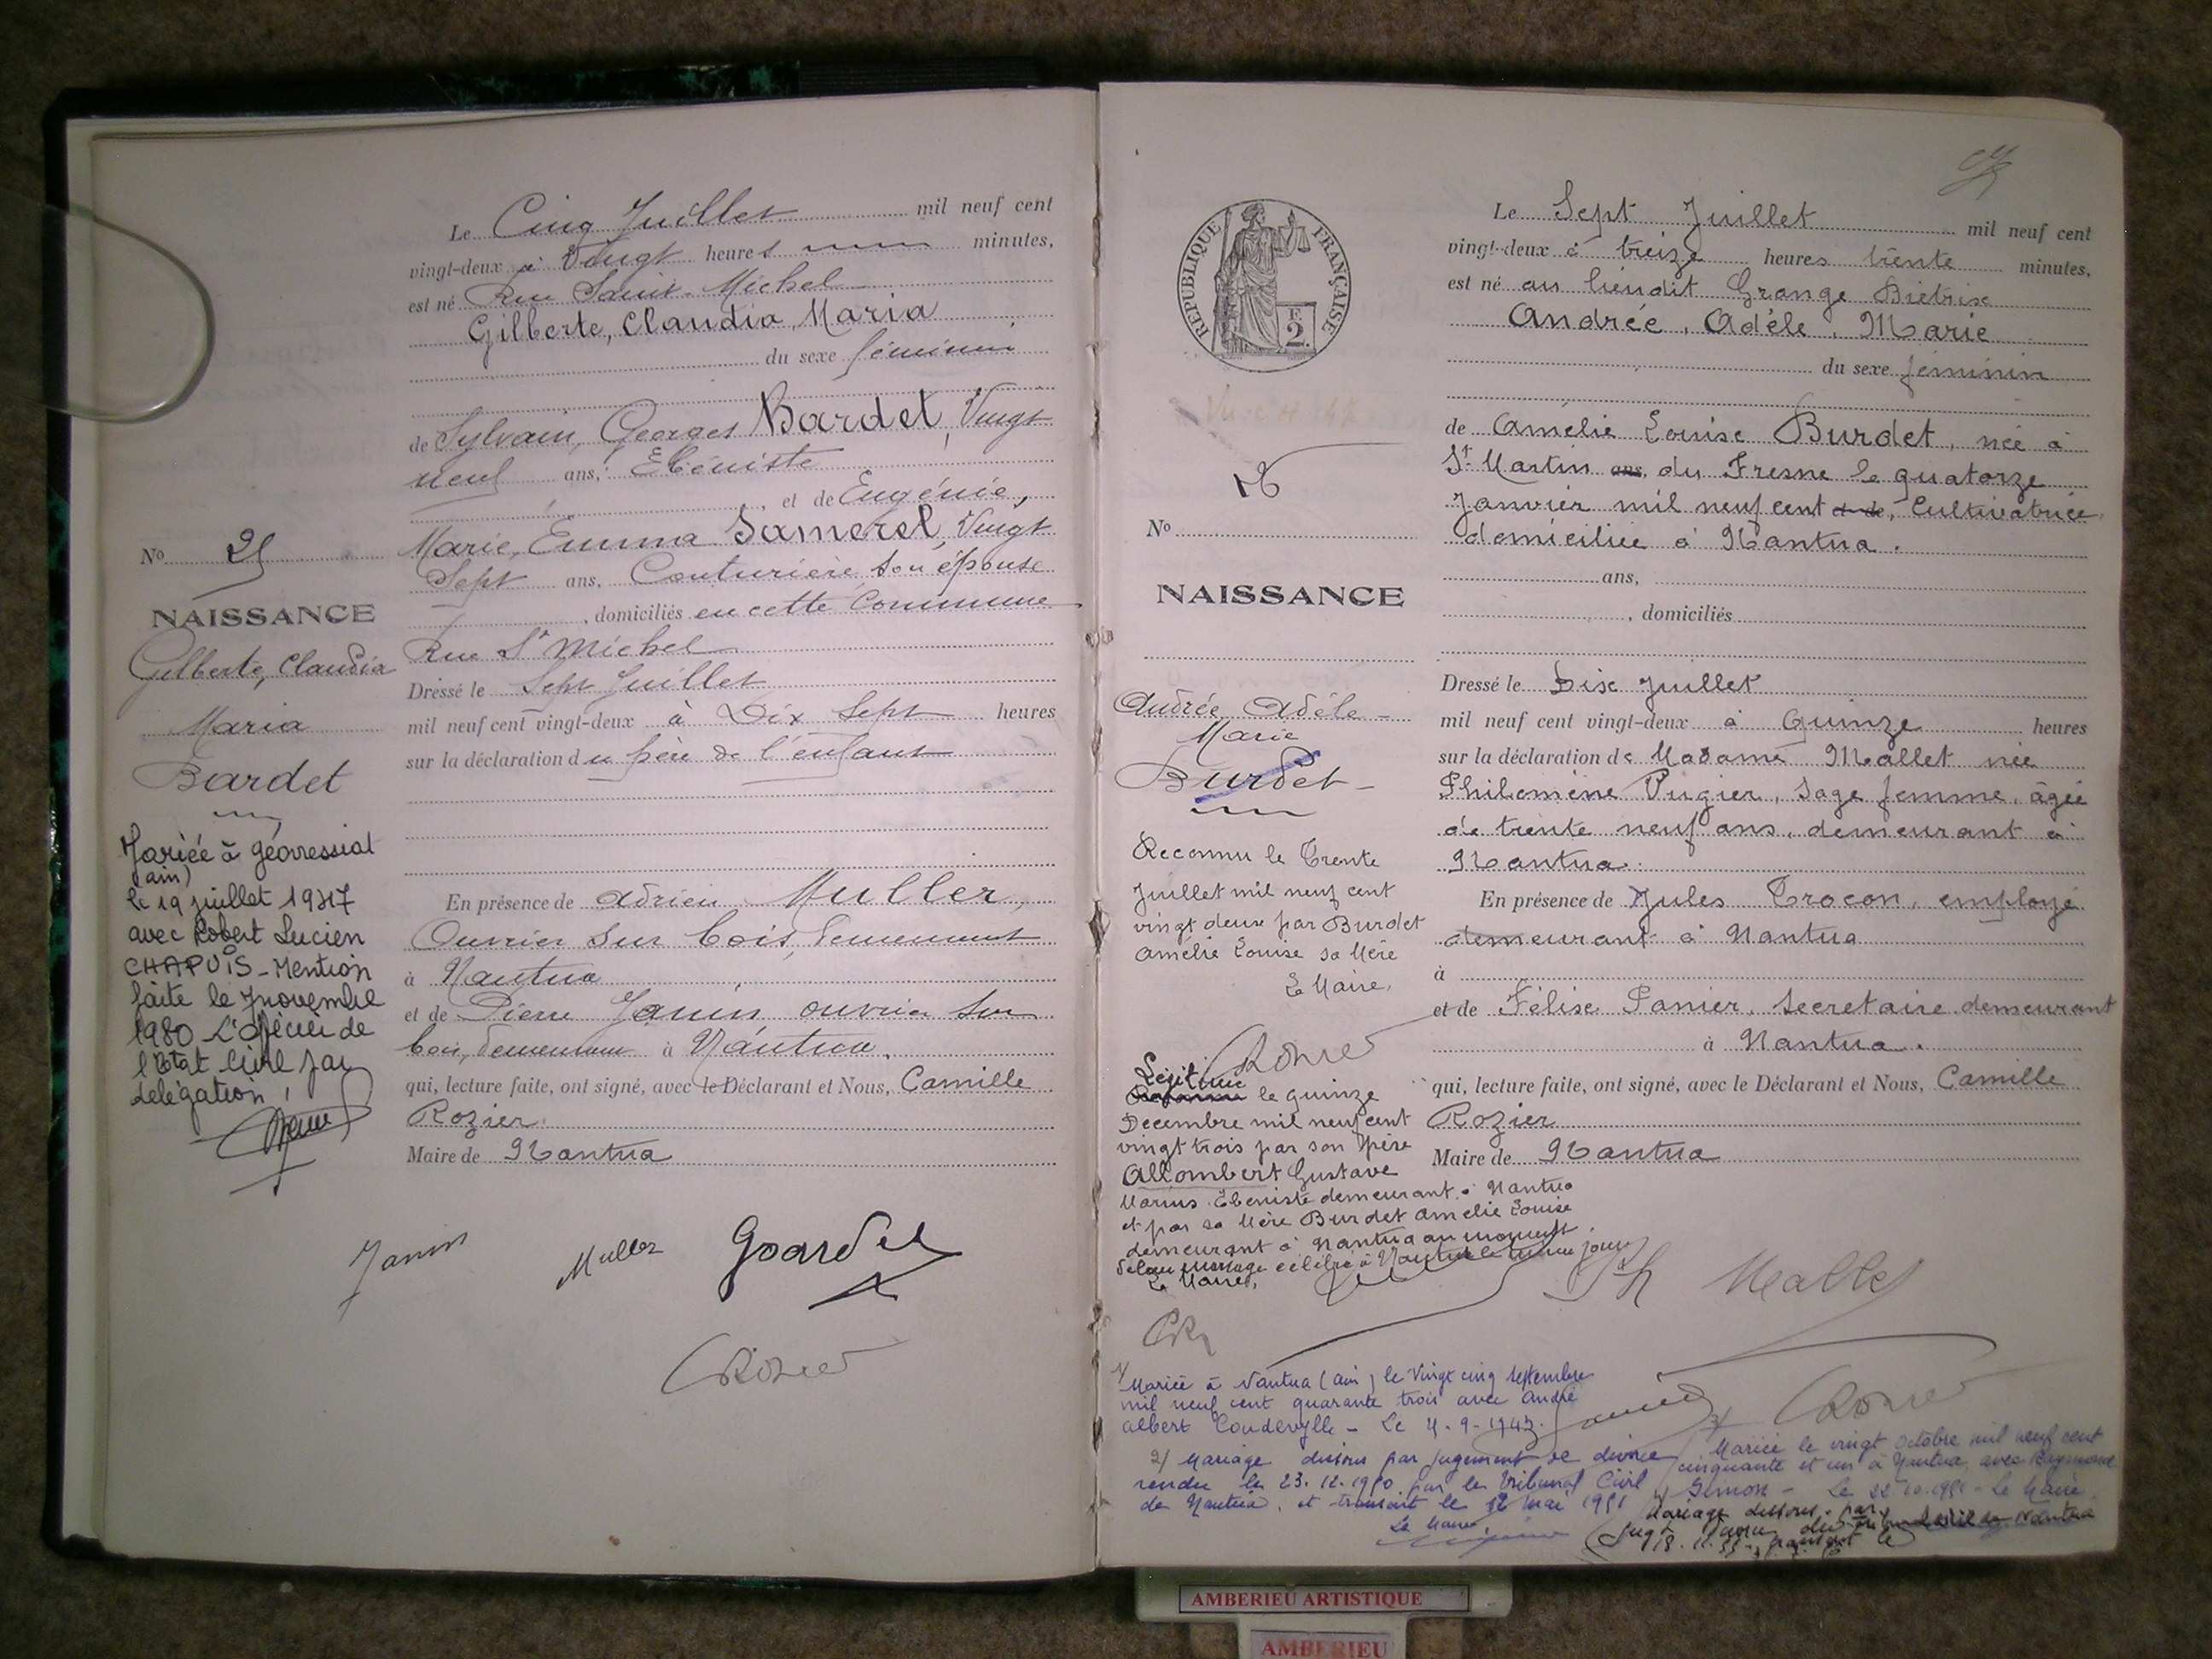 Le Cinq Juillet mil neuf cent
vingt-deux à Vingt heures minutes,
est né Rue Saint-Michel
Gilberte, Claudia, Maria
du sexe féminin
de Sylvain, Georges Bardet, Vingt
neuf ans, Ebéniste
et de Eugénie,
Marie, Emma Jamerel, Vingt
Sept ans, Couturière son épouse
, domiciliés en cette Commune
Rue St Michel
Dressé le Sept Juillet
mil neuf cent vingt-deux à Dix Sept heures
sur la déclaration du père de l'enfant
En présence de Adrien Muller,
Ouvrier sur bois, demeurant
à Nantua
et de Pierre Janin ouvrier sur
bois, demeurant à Nantua.
qui, lecture faite, ont signé, avec le Déclarant et Nous, Camille
Rozier
Maire de Nantua
No 25
NAISSANCE
Gilberte, Claudia
Maria
Bardet
Mariée à Géovressiat
(ain)
le 19 juillet 1947
avec Robert Lucien
CHAPUIS - Mention
faite le 7 novembre
1980 L'officier de
l'Etat Civil par
délégation,
Janin Muller GBardet
CRozier
RÉPUBLIQUE FRANÇAISE
F.
2.
Le Sept Juillet mil neuf cent
vingt-deux à treize heures trente minutes,
est né au lieudit Grange Bietrix
Andrée, Adèle, Marie
du sexe féminin
de Amélie Louise Burdet, née à
St Martin ans, du Fresne le quatorze
Janvier mil neuf cent et de, Cultivatrice,
domiciliée à Nantua.
ans,
, domiciliés
Dressé le Dix Juillet
mil neuf cent vingt-deux à Quinze heures
sur la déclaration de Madame Mallet née
Philomène Pugier, sage femme, âgée
de trente neuf ans, demeurant à
Nantua.
En présence de Jules Trocon, employé
demeurant à Nantua
à
et de Félix Panier, secretaire demeurant
à Nantua.
qui, lecture faite, ont signé, avec le Déclarant et Nous, Camille
Rozier
Maire de Nantua
No 26
NAISSANCE
Andrée Adèle
Marie
Burdet
Reconnu le Trente
Juillet mil neuf cent
vingt deux par Burdet
Amélie Louise sa Mère
Le Maire,
CRozier
Légitimé
Reconnu le quinze
Decembre mil neuf cent
vingt trois par son père
Allombert Gustave
Marius Ebeniste demeurant à Nantua
et par sa Mère Burdet Amelie Louise
demeurant à Nantua au moment
de leur mariage célébré à Nantua le même jour
Le Maire,
CR
Ph Mallet
CRozier
1/ Mariée à Nantua (Ain) le Vingt cinq septembre
mil neuf cent quarante trois avec André
Albert Coudevylle - Le
2/ Mariage dissous par jugement de divorce
rendu le 23.12.1950 par le tribunal Civil
de Nantua, et transcrit le 12 mai 1951
Le Maire,
3/ Mariée le vingt octobre mil neuf cent
cinquante et un à Nantua avec Raymond
Simon - Le 22.10.1951 - Le Maire
4/ Mariage dissous par
AMBERIEU ARTISTIQUE
AMBERIEU